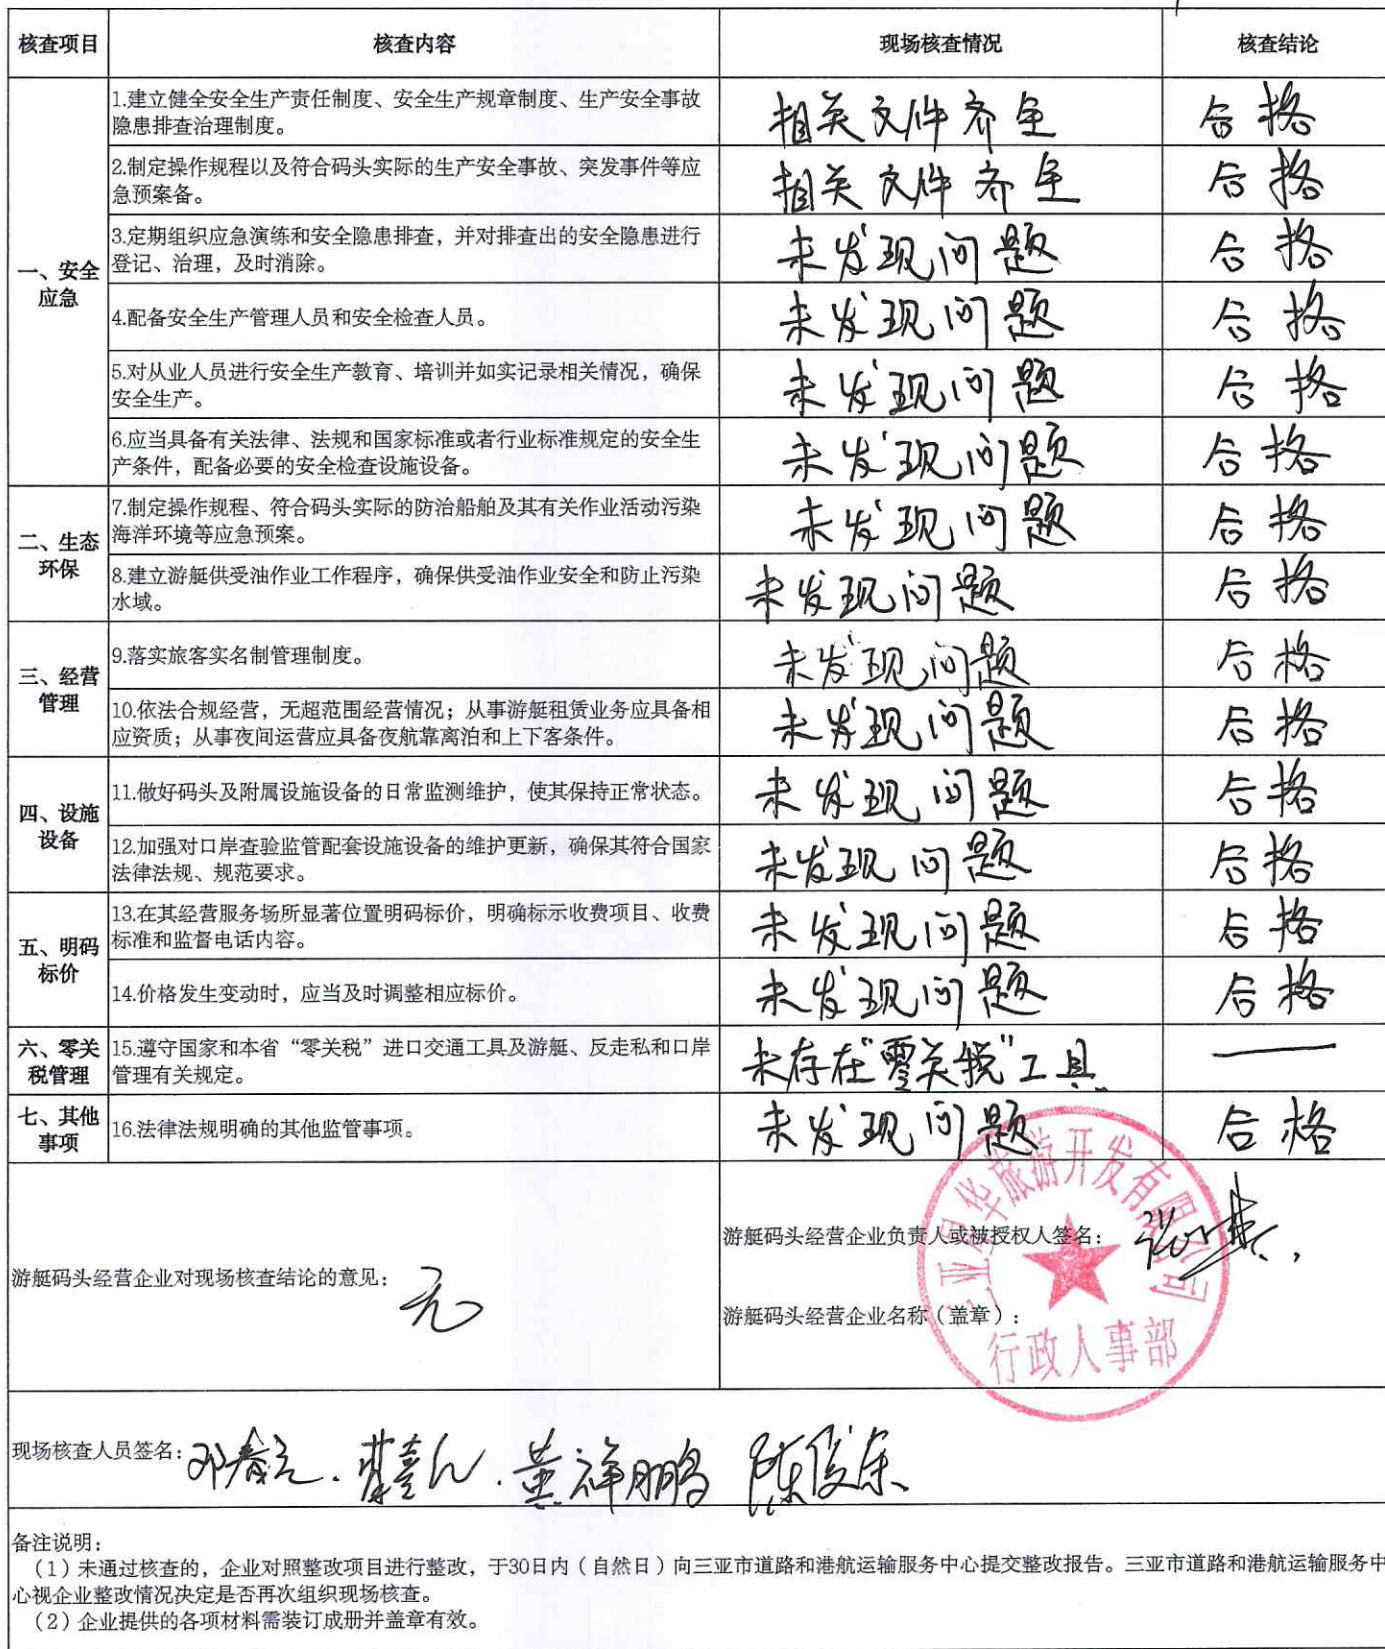 核查项目 核查内容 现场核查情况 核查结论
一、安全应急
1.建立健全安全生产责任制度、安全生产规章制度、生产安全事故
隐患排查治理制度。 相关文件齐全 合格
2.制定操作规程以及符合码头实际的生产安全事故、突发事件等应
急预案备。 相关文件齐全 合格
3.定期组织应急演练和安全隐患排查，并对排查出的安全隐患进行
登记、治理，及时消除。 未发现问题 合格
4.配备安全生产管理人员和安全检查人员。 未发现问题 合格
5.对从业人员进行安全生产教育、培训并如实记录相关情况，确保
安全生产。 未发现问题 合格
6.应当具备有关法律、法规和国家标准或者行业标准规定的安全生
产条件，配备必要的安全检查设施设备。 未发现问题 合格
二、生态环保
7.制定操作规程、符合码头实际的防治船舶及其有关作业活动污染
海洋环境等应急预案。 未发现问题 合格
8.建立游艇供受油作业工作程序，确保供受油作业安全和防止污染
水域。 未发现问题 合格
三、经营管理
9.落实旅客实名制管理制度。 未发现问题 合格
10.依法合规经营，无超范围经营情况；从事游艇租赁业务应具备相
应资质；从事夜间运营应具备夜航靠离泊和上下客条件。 未发现问题 合格
四、设施设备
11.做好码头及附属设施设备的日常监测维护，使其保持正常状态。 未发现问题 合格
12.加强对口岸查验监管配套设施设备的维护更新，确保其符合国家
法律法规、规范要求。 未发现问题 合格
五、明码标价
13.在其经营服务场所显著位置明码标价，明确标示收费项目、收费
标准和监督电话内容。 未发现问题 合格
14.价格发生变动时，应当及时调整相应标价。 未发现问题 合格
六、零关税管理
15.遵守国家和本省“零关税”进口交通工具及游艇、反走私和口岸
管理有关规定。 未存在“零关税”工具 —
七、其他事项
16.法律法规明确的其他监管事项。 未发现问题 合格
游艇码头经营企业对现场核查结论的意见： 无
游艇码头经营企业负责人或被授权人签名：
游艇码头经营企业名称（盖章）：
华旅游开发有限公司
行政人事部
现场核查人员签名： 黄祥鹏 陈俊东
备注说明：
（1）未通过核查的，企业对照整改项目进行整改，于30日内（自然日）向三亚市道路和港航运输服务中心提交整改报告。三亚市道路和港航运输服务中
心视企业整改情况决定是否再次组织现场核查。
（2）企业提供的各项材料需装订成册并盖章有效。